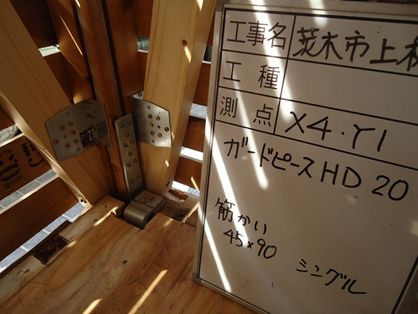 工事名 茨木市上
工種
測点 X4・Y1
ガードピースHD20
筋かい
45×90
シングル